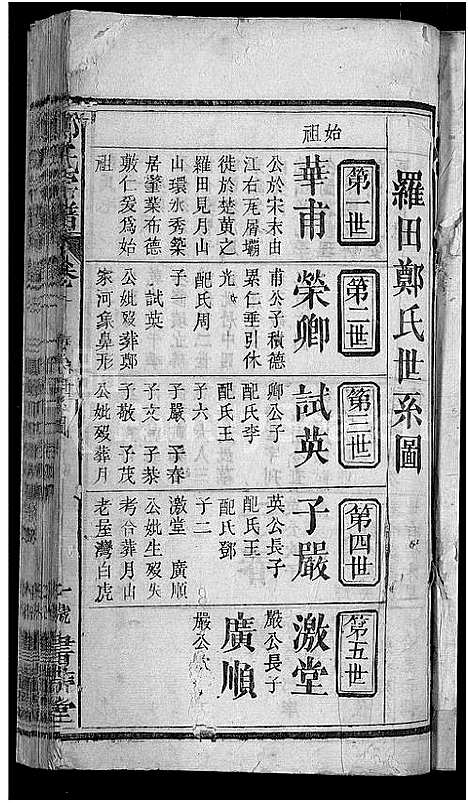 羅田鄭氏世系圖
第一世
始祖
華甫
公於宋末由
江右瓦屑壩
徙於楚黃之
羅田見月山
山環水秀築
居肇業布德
敷仁爰為始
祖
第二世
榮卿
甫公子積德
累仁垂引休
光
配氏周
子一
試英
公妣歿葬鄭
家河象鼻形
第三世
試英
卿公子
配氏李
配氏王
子六
子嚴 子春
子文 子恭
子敬 子茂
公妣歿葬月
第四世
子嚴
英公長子
配氏王
配氏鄧
子二
激堂 廣順
公妣生歿失
考合葬月山
老屋灣白虎
第五世
激堂
嚴公長子
廣順
嚴公次
書帶堂